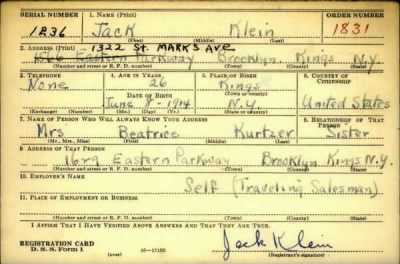 SERIAL NUMBER 1. NAME (Print) ORDER NUMBER
1236 Jack Klein 1831
(First) (Middle) (Last)
1322 St. MARKS AVE
2. ADDRESS (Print)
Eastern Parkway Brooklyn Kings N.Y.
(Number and street or R. F. D. number) (Town) (County) (State)
3. TELEPHONE 4. AGE IN YEARS 5. PLACE OF BIRTH 6. COUNTRY OF CITIZENSHIP
None 26 Kings
DATE OF BIRTH (Town or county)
June 8-1914 N.Y. United States
(Exchange) (Number) (Mo.) (Day) (Yr.) (State or country)
7. NAME OF PERSON WHO WILL ALWAYS KNOW YOUR ADDRESS 8. RELATIONSHIP OF THAT PERSON
Mrs Beatrice Kurtzer Sister
(Mr., Mrs., Miss) (First) (Middle) (Last)
9. ADDRESS OF THAT PERSON
Eastern Parkway Brooklyn Kings N.Y.
(Number and street or R. F. D. number) (Town) (County) (State)
10. EMPLOYER'S NAME
Self (Traveling Salesman)
11. PLACE OF EMPLOYMENT OR BUSINESS
(Number and street or R. F. D. number) (Town) (County) (State)
I AFFIRM THAT I HAVE VERIFIED ABOVE ANSWERS AND THAT THEY ARE TRUE.
REGISTRATION CARD Jack Klein
D. S. S. Form 1 (over) 16—17105 (Registrant's signature)